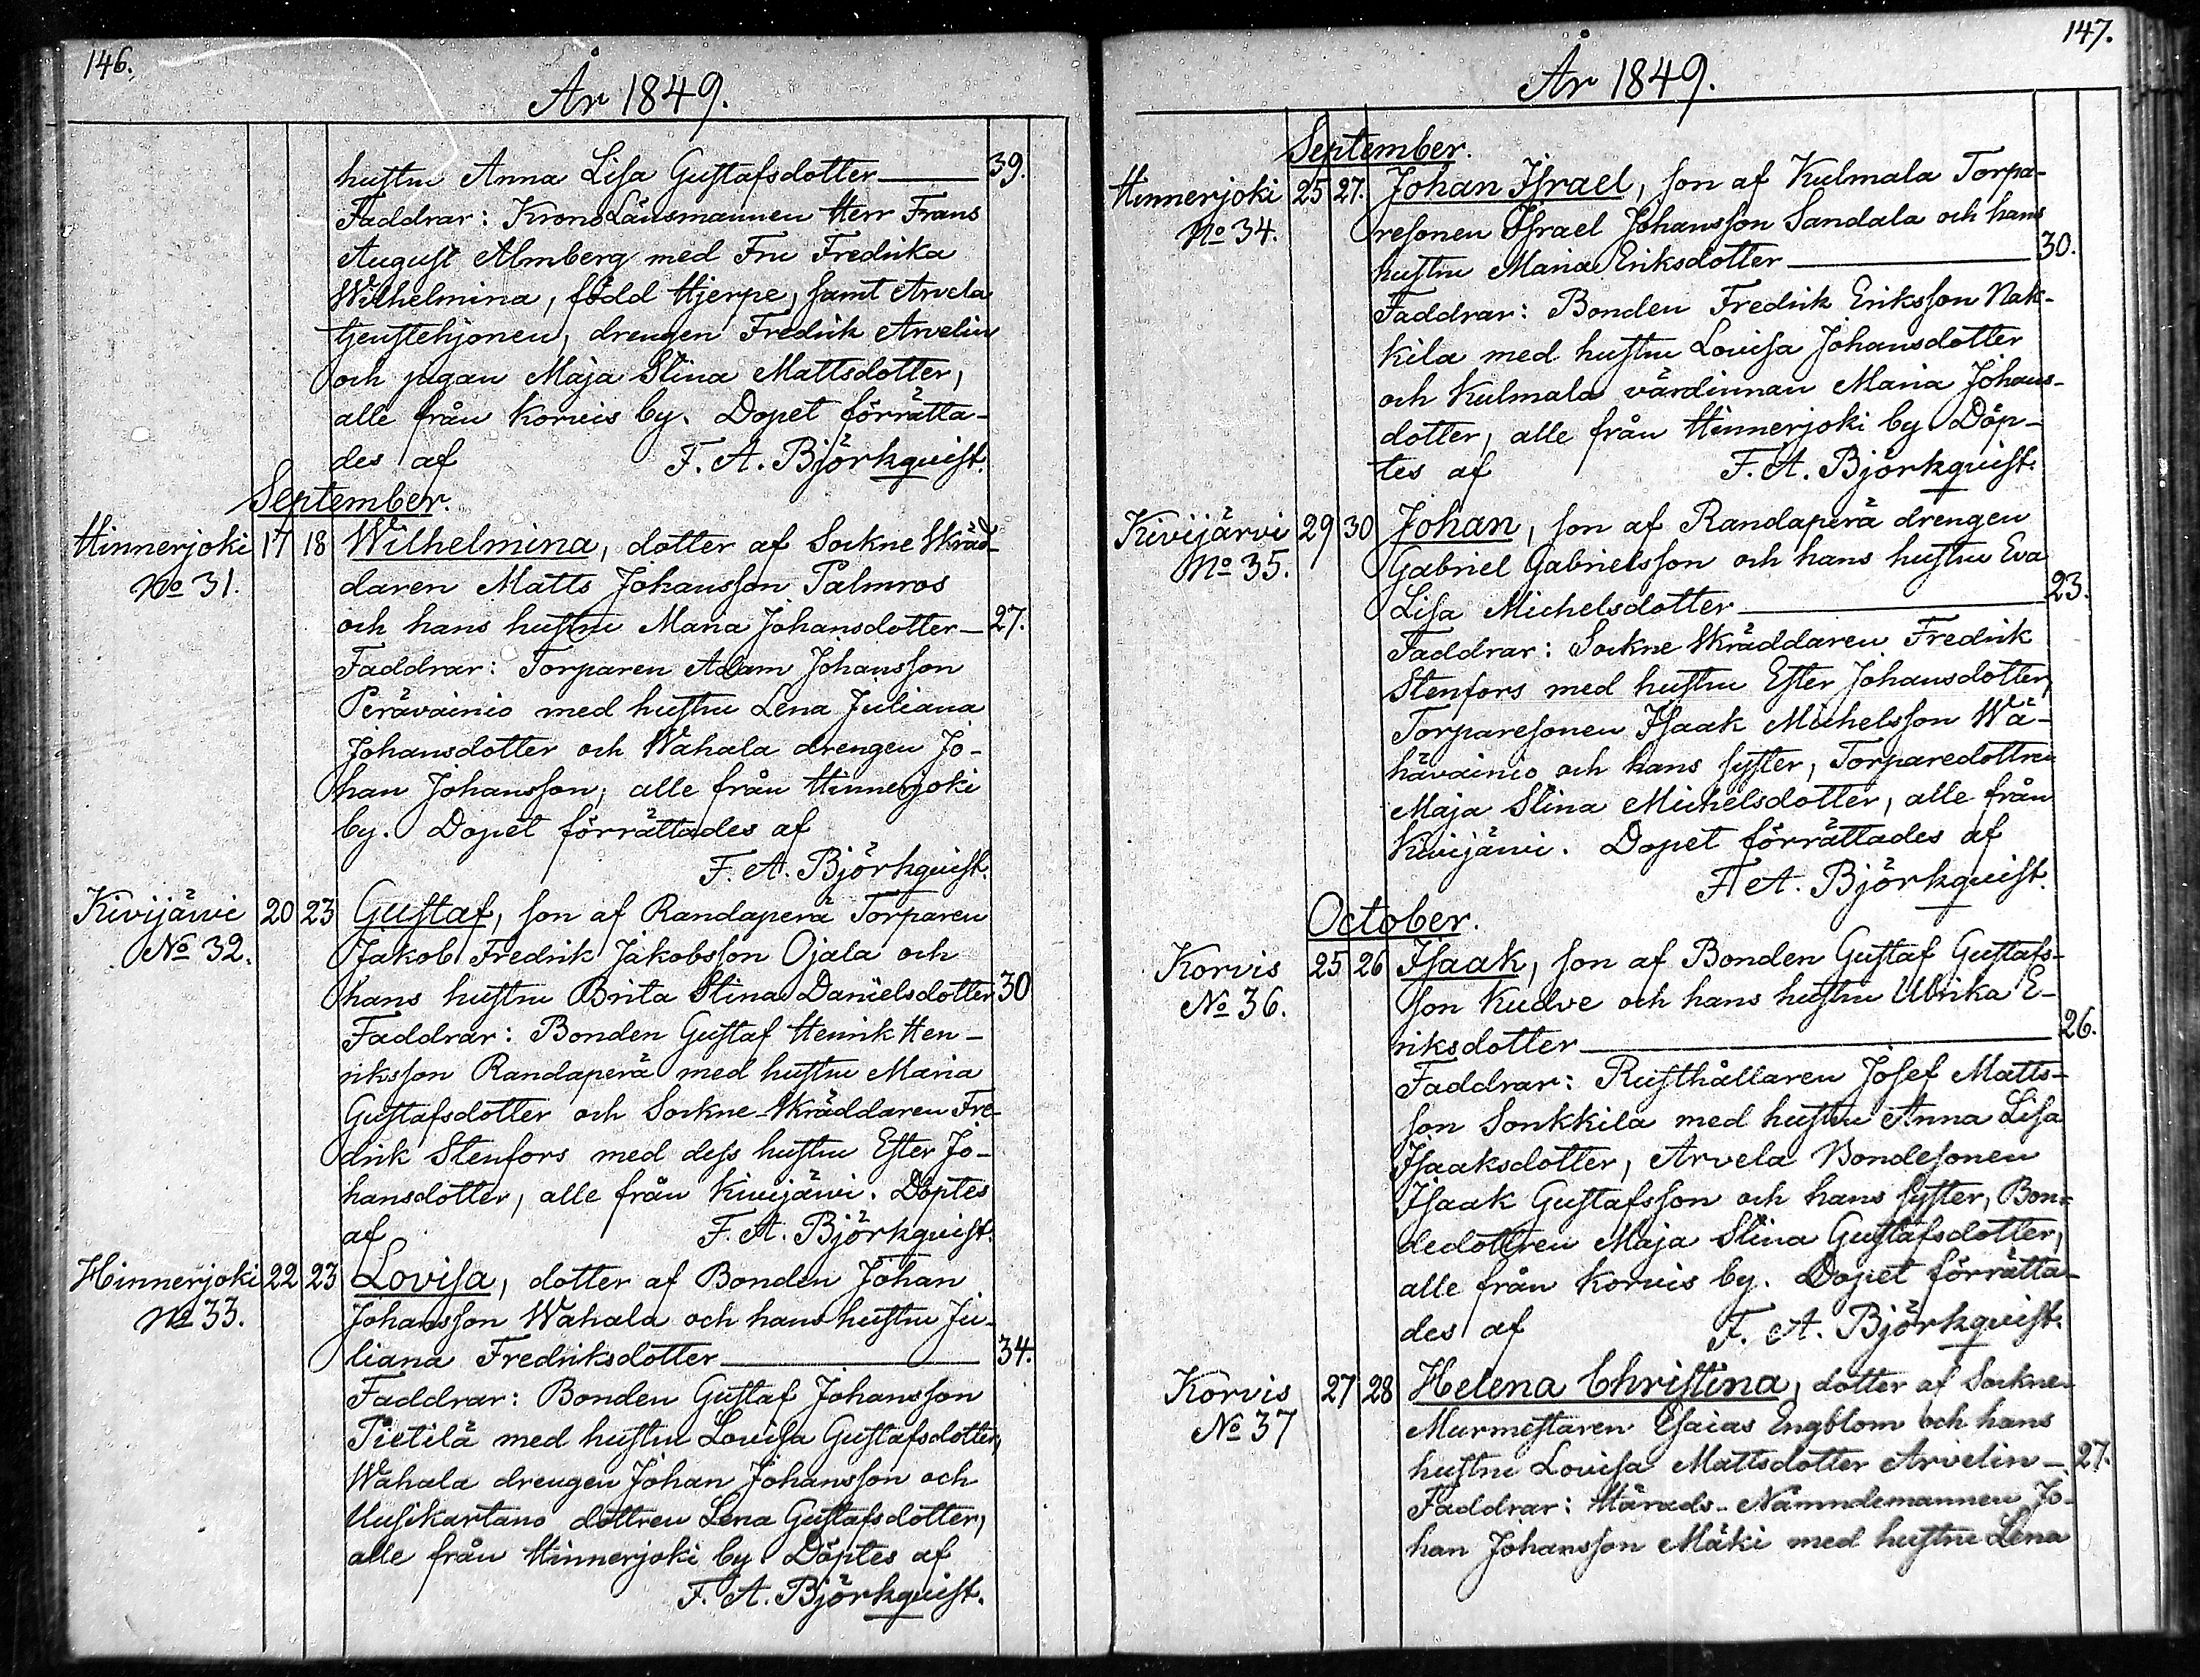 146.
År 1849.
hustru Anna Lisa Gustafsdotter — 39.
Faddrar: Krono Länsmannen Herr Frans
August Almberg med Fru Fredrika
Wilhelmina, född Hjerpe, samt Arvela
tjenstehjonen, drengen Fredrik Arvelin
och pigan Maja Stina Mattsdotter,
alle från Korvis by. Dopet förrätta-
des af F. A. Björkquist.
September.
Hinnerjoki 17 18 Wilhelmina, dotter af Sockne Skräd-
No 31. daren Matts Johansson Palmros
och hans hustru Maria Johansdotter — 27.
Faddrar: Torparen Adam Johansson
Perävainio med hustru Lena Juliana
Johansdotter och Wahala drengen Jo-
han Johansson, alle från Hinnerjoki
by. Dopet förrättades af
F. A. Björkquist.
Kivijärvi 20 23 Gustaf, son af Randaperä Torparen
No 32. Jakob Fredrik Jakobsson Ojala och
hans hustru Brita Stina Danielsdotter 30
Faddrar: Bonden Gustaf Henrik Hen-
riksson Randaperä med hustru Maria
Gustafsdotter och Sockne-Skräddaren Fre-
drik Stenfors med dess hustru Ester Jo-
hansdotter, alle från Kivijärvi. Döptes
af F. A. Björkquist.
Hinnerjoki 22 23 Lovisa, dotter af Bonden Johan
No 33. Johansson Wahala och hans hustru Ju-
liana Fredriksdotter — 34.
Faddrar: Bonden Gustaf Johansson
Pietilä med hustru Lovisa Gustafsdotter,
Wahala drengen Johan Johansson och
Uusikartano dottren Lena Gustafsdotter,
alle från Hinnerjoki by. Döptes af
F. A. Björkquist.
147.
År 1849.
September.
Hinnerjoki 25 27. Johan Israel, son af Kulmala Torpa-
No 34. resonen Israel Johansson Sandala och hans
hustru Maria Eriksdotter — 30.
Faddrar: Bonden Fredrik Eriksson Nak-
kila med hustru Lovisa Johansdotter
och Kulmala värdinnan Maria Johans-
dotter, alle från Hinnerjoki by. Döp-
tes af F. A. Björkquist.
Kivijärvi 29 30 Johan, son af Randaperä drengen
No 35. Gabriel Gabrielsson och hans hustru Eva
Lisa Michelsdotter — 23.
Faddrar: Sockne Skräddaren Fredrik
Stenfors med hustru Ester Johansdotter,
Torparesonen Isaak Michelsson Wä-
hävainio och hans syster, Torparedottren
Maja Stina Michelsdotter, alle från
Kivijärvi. Dopet förrättades af
F. A. Björkquist.
October.
Korvis 25 26 Isaak, son af Bonden Gustaf Gustafs-
No 36. son Kudve och hans hustru Ulrika E-
riksdotter — 26.
Faddrar: Rusthållaren Josef Matts-
son Sonkkila med hustru Anna Lisa
Isaaksdotter, Arvela Bondesonen
Isaak Gustafsson och hans syster, Bon-
dedottren Maja Stina Gustafsdotter,
alle från Korvis by. Dopet förrätta-
des af F. A. Björkquist.
Korvis 27 28 Helena Christina, dotter af Sockne-
No 37 Murmestaren Esaias Engblom och hans
hustru Lovisa Mattsdotter Arvelin — 27.
Faddrar: Härads-Nämndemannen Jo-
han Johansson Mäki med hustru Lena